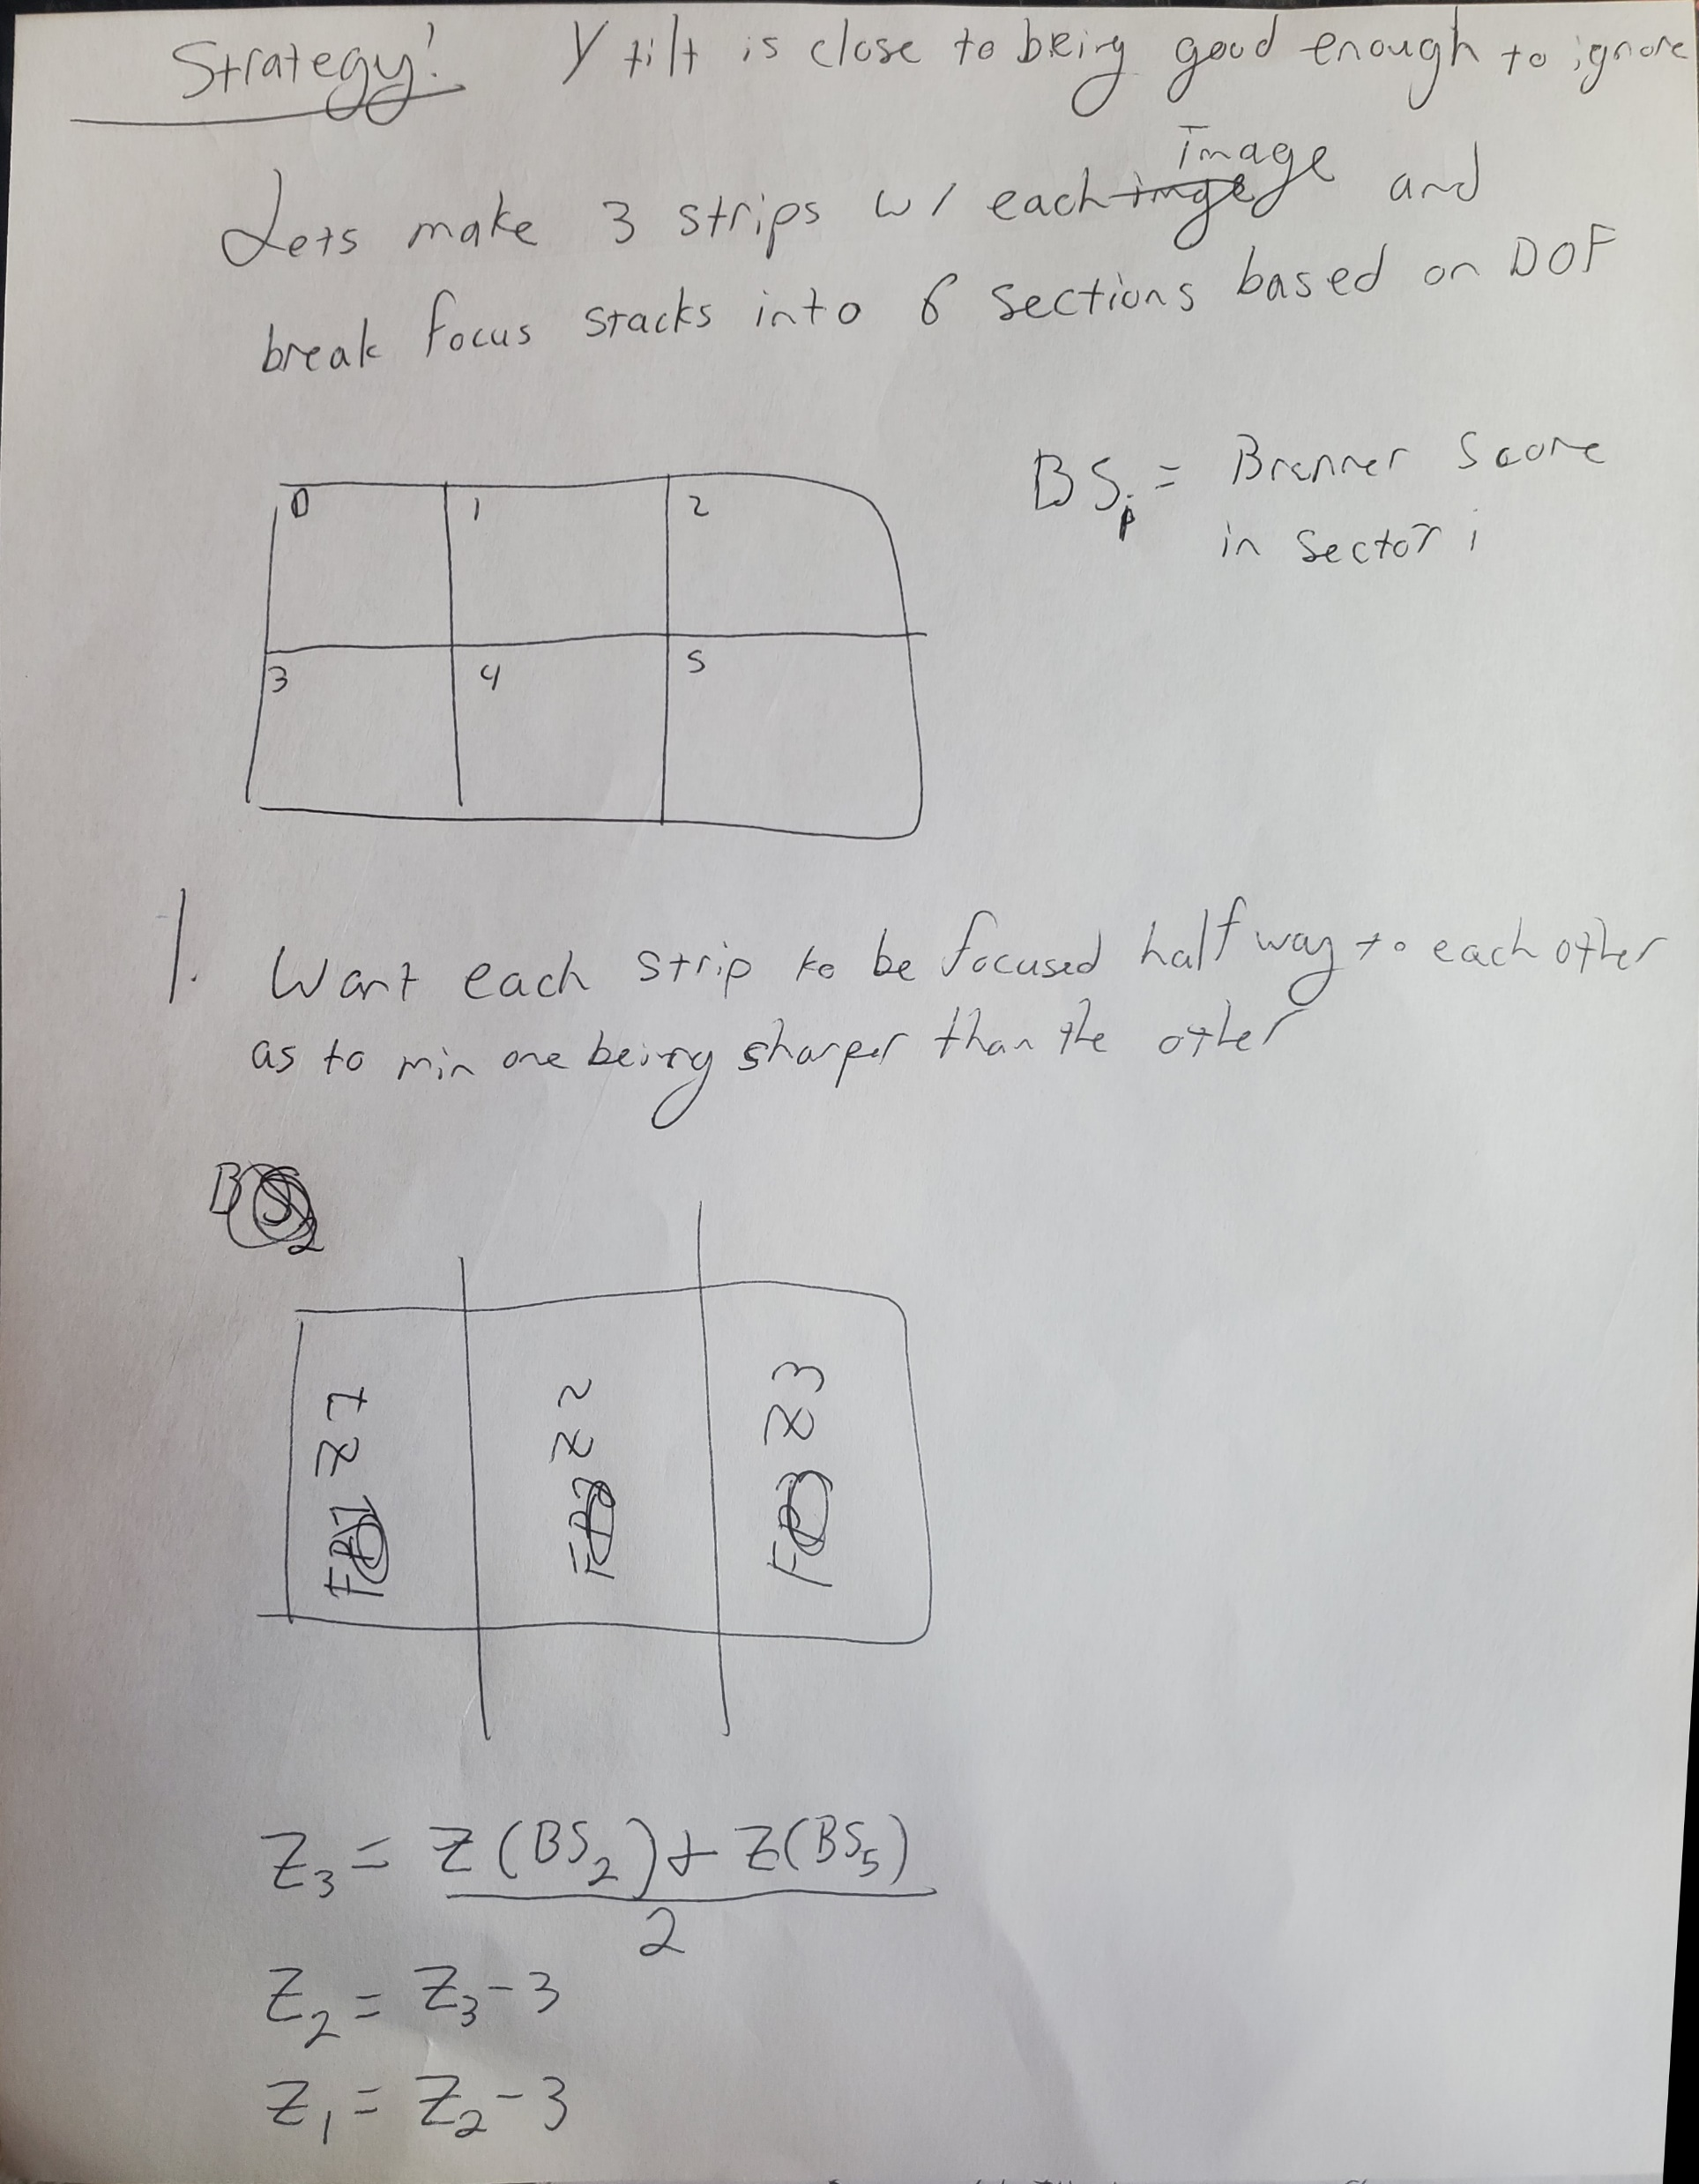 Strategy! Y tilt is close to being good enough to ignore
Image
Lets make 3 strips w/ each imge and
break focus stacks into 6 sections based on DOF
BSi = Brenner Score
in Sector i
0 1 2
3 4 5
1. Want each strip to be focused half way to each other
as to min one being sharper than the other
BS2
Z1
Z2
Z3
Z3 = Z(BS2) + Z(BS5)
2
Z2 = Z3 - 3
Z1 = Z2 - 3